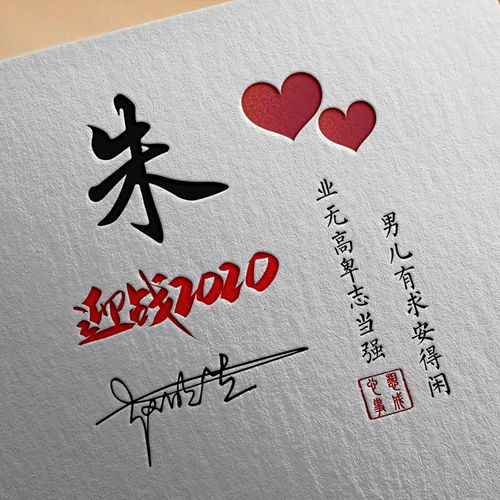 朱
迎战2020
业无高卑志当强
男儿有求安得闲
心想事成